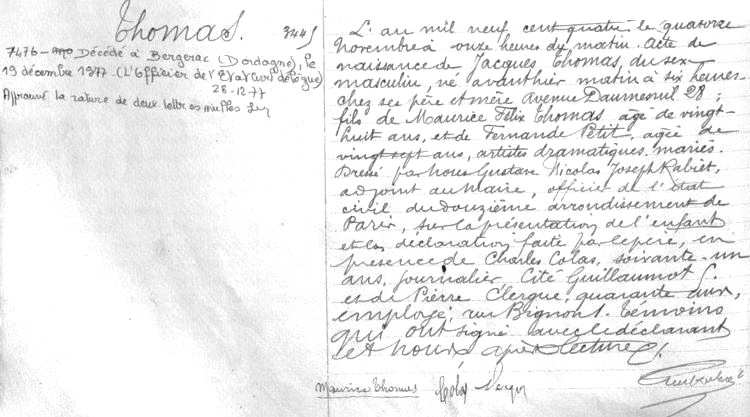 Thomas. 3445
7476 — Décédé à Bergerac (Dordogne), le
19 décembre 1977. (L'Officier de l'Etat Civil délégué)
28-12-77
Approuvé la rature de deux lettres nulles
L'an mil neuf cent quatre le quatorze
novembre à onze heures du matin. Acte de
naissance de Jacques Thomas, du sexe
masculin, né avanthier matin à six heures
chez ses père et mère Avenue Daumesnil 28 ;
fils de Maurice Félix Thomas âgé de vingt-
huit ans, et de Fernande Petit, agée de
vingt sept ans, artistes dramatiques, mariés.
Dressé par Nous Gustave Nicolas Joseph Rabiet,
adjoint au Maire, officier de l'état
civil du douzième arrondissement de
Paris, sur la présentation de l'enfant
et la déclaration faite par le père, en
présence de Charles Colas, soixante-un
ans, journalier, Cité Guillaumot
et de Pierre Clergue, quarante deux,
employé, rue Bignon 1. témoins
qui ont signé avec le déclarant
et nous après lecture.
Maurice Thomas Colas